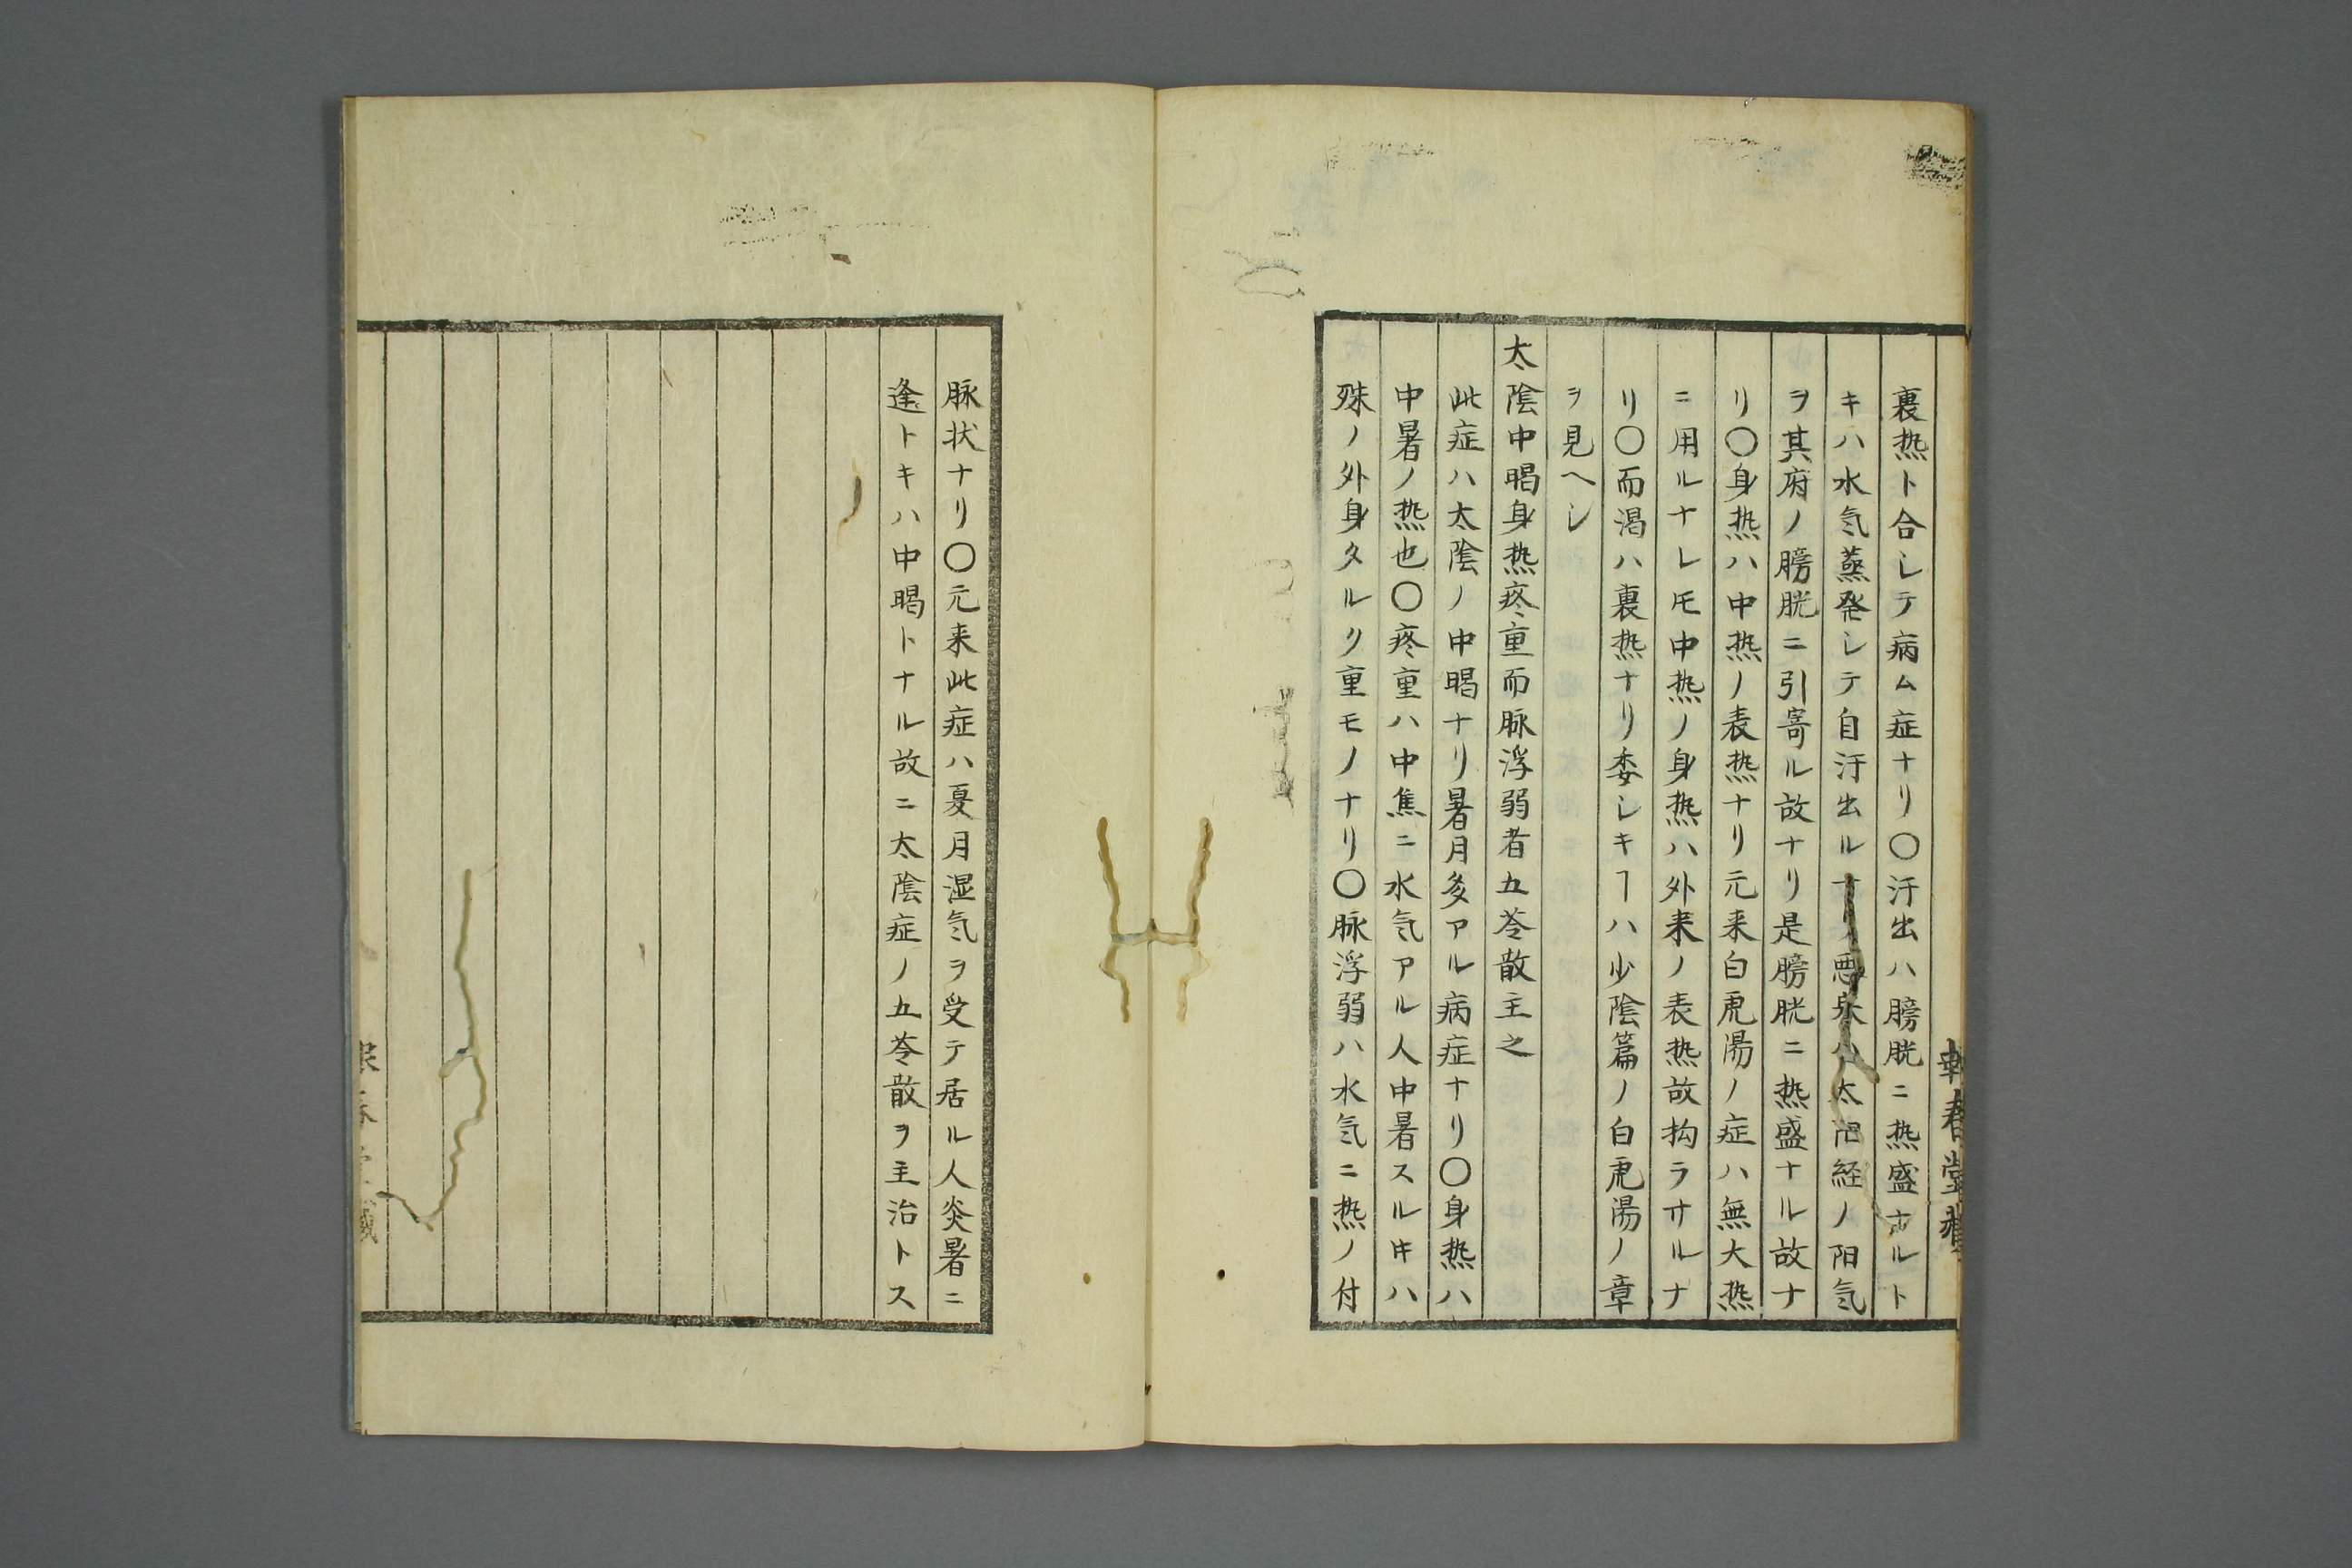 裏热ト合シテ病ム症ナリ〇汗出ハ膀胱ニ热盛ナルト
キハ水気蒸発シテ自汗出ルナリ悪寒ハ太陽経ノ阳気
ヲ其府ノ膀胱ニ引寄ル故ナリ是膀胱ニ热盛ナル故ナ
リ〇身热ハ中热ノ表热ナリ元来白虎湯ノ症ハ無大热
ニ用ルナレ𪜈中热ノ身热ハ外来ノ表热故拘ラサルナ
リ〇而渇ハ裏热ナリ委シキヿハ少陰篇ノ白虎湯ノ章
ヲ見ヘシ
太陰中暍身热疼重而脉浮弱者五苓散主之
此症ハ太陰ノ中暍ナリ暑月多アル病症ナリ〇身热ハ
中暑ノ热也〇疼重ハ中焦ニ水気アル人中暑スル𪜈ハ
殊ノ外身タルク重モノナリ〇脉浮弱ハ水気ニ热ノ付
脉状ナリ〇元来此症ハ夏月湿気ヲ受テ居ル人炎暑ニ
逢トキハ中暍トナル故ニ太陰症ノ五苓散ヲ主治トス